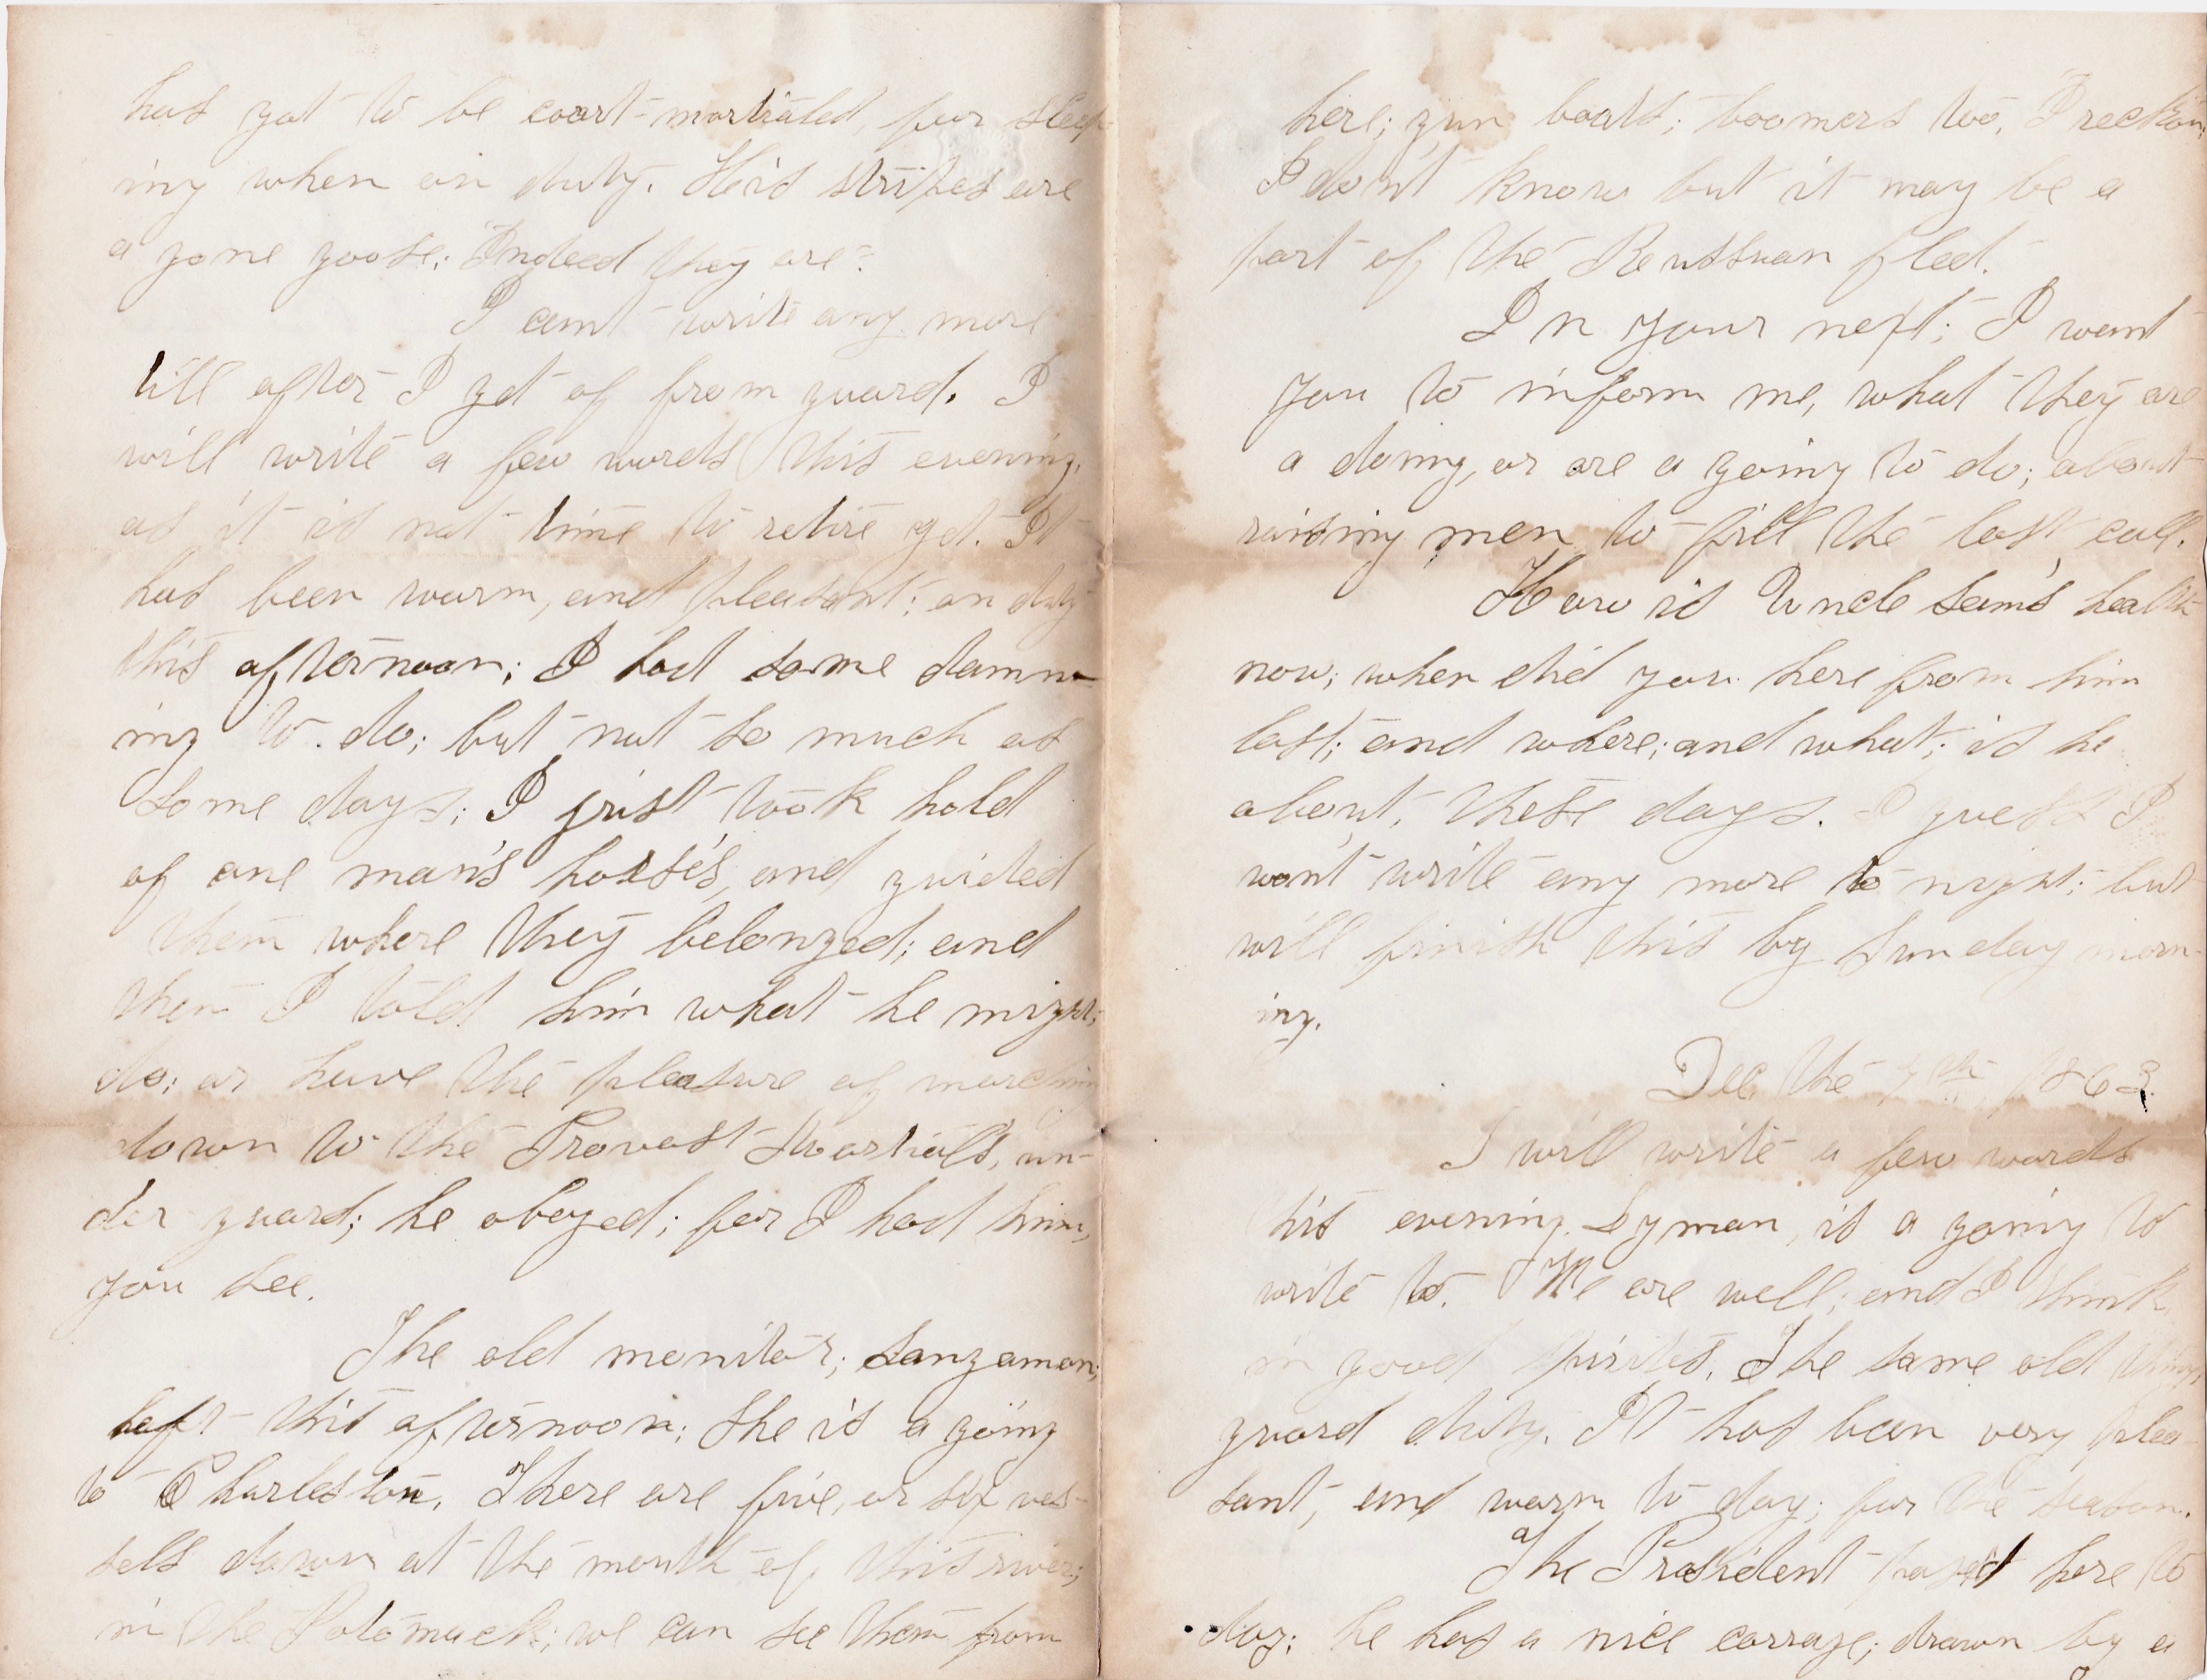 has got to be court-martialed, for sleep
ing when on duty. He's stripes are
a gone goose; Indeed they are.
I cant write any more
till after I get of from guard. I
will write a few words this evening,
as it is not time to retire yet. It
has been warm, and pleasant; on duty
this afternoon; I had some damn
ing to do; but not so much as
some days; I just took hold
of one man's horses, and guided
them where they belonged; and
then I told him what he might
do; or have the pleasure of marching
down to the Provost Martials, un-
der guard; he obeyed; for I had him,
you see.
The old monitor; Sangamon;
left this afternoon; She is a going
to Charleston. There are five, or six ves-
sels down at the mouth of this river;
in the Potomack; we can see them from
here; gun boats; boomers too, I reckon;
I don't know but it may be a
part of the Reussuan fleet.
In your next; I want
you to inform me, what they are
a doing, or are a going to do; about
raising men to fill the last call.
How is Uncle Sam's health
now; when did you here from him
last; and where; and what; is he
about, these days. I guess I
won't write any more to night; but
will finish this by Sunday morn-
ing.
Dec, the 4th 1863.
I will write a few words
this evening. Lyman, is a going to
write to. We are well; and I think,
in good spirits. The same old thing,
guard duty. It has been very plea
sant, and warm to day; for the season.
The President passed here to
day; he has a nice carrage; drawn by a